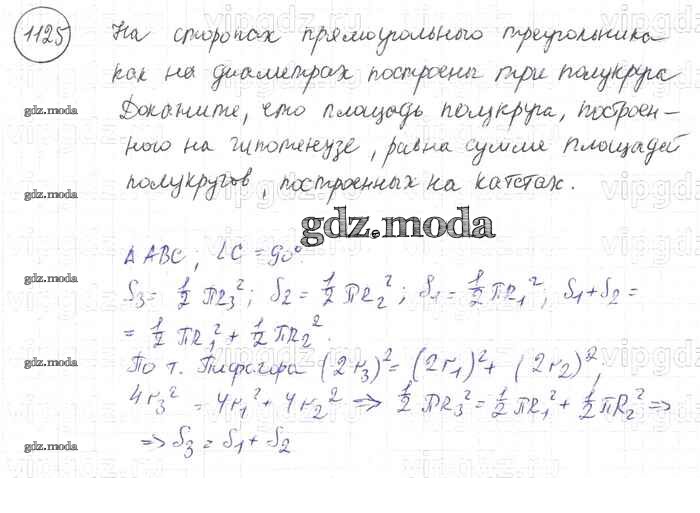 1125
На сторонах прямоугольного треугольника
как на диаметрах построены три полукруга
Докажите, что площадь полукруга, построен-
ного на гипотенузе, равна сумме площадей
полукругов, построенных на катетах.
gdz.moda
gdz.moda
gdz.moda
Δ ABC, ∠C = 90°.
S₃ = 1/2 πR₃²; S₂ = 1/2 πR₂²; S₁ = 1/2 πR₁²; S₁+S₂ =
= 1/2 πR₁² + 1/2 πR₂².
gdz.moda
По т. Пифагора (2r₃)² = (2r₁)² + (2r₂)²,
4r₃² = 4r₁² + 4r₂² => 1/2 πR₃² = 1/2 πR₁² + 1/2 πR₂² =>
=> S₃ = S₁ + S₂
gdz.moda
gdz.moda
vipgdz.ru